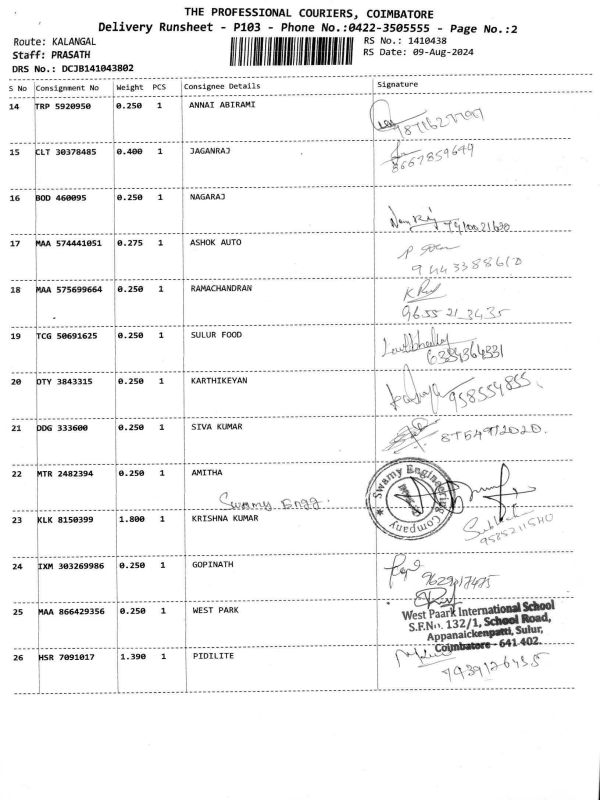 THE PROFESSIONAL COURIERS, COIMBATORE
Delivery Runsheet - P103 - Phone No.:0422-3505555 - Page No.:2
Route: KALANGAL
RS No.: 1410438
Staff: PRASATH
RS Date: 09-Aug-2024
DRS No.: DCJB141043802
S No Consignment No Weight PCS Consignee Details Signature
14 TRP 5920950 0.250 1 ANNAI ABIRAMI
15 CLT 30378485 0.400 1 JAGANRAJ
8667859649
16 BOD 460095 0.250 1 NAGARAJ
17 MAA 574441051 0.275 1 ASHOK AUTO
9443388610
18 MAA 575699664 0.250 1 RAMACHANDRAN
9655213435
19 TCG 50691625 0.250 1 SULUR FOOD
6384364331
20 OTY 3843315 0.250 1 KARTHIKEYAN
21 DDG 333600 0.250 1 SIVA KUMAR
22 MTR 2482394 0.250 1 AMITHA
Swamy Engg.
Swamy Engineering Company
23 KLK 8150399 1.800 1 KRISHNA KUMAR
24 IXM 303269986 0.250 1 GOPINATH
25 MAA 866429356 0.250 1 WEST PARK
West Paark International School
S.F.No. 132/1, School Road,
Appanaickenpatti, Sulur,
Coimbatore - 641 402.
26 HSR 7091017 1.390 1 PIDILITE
7939126455